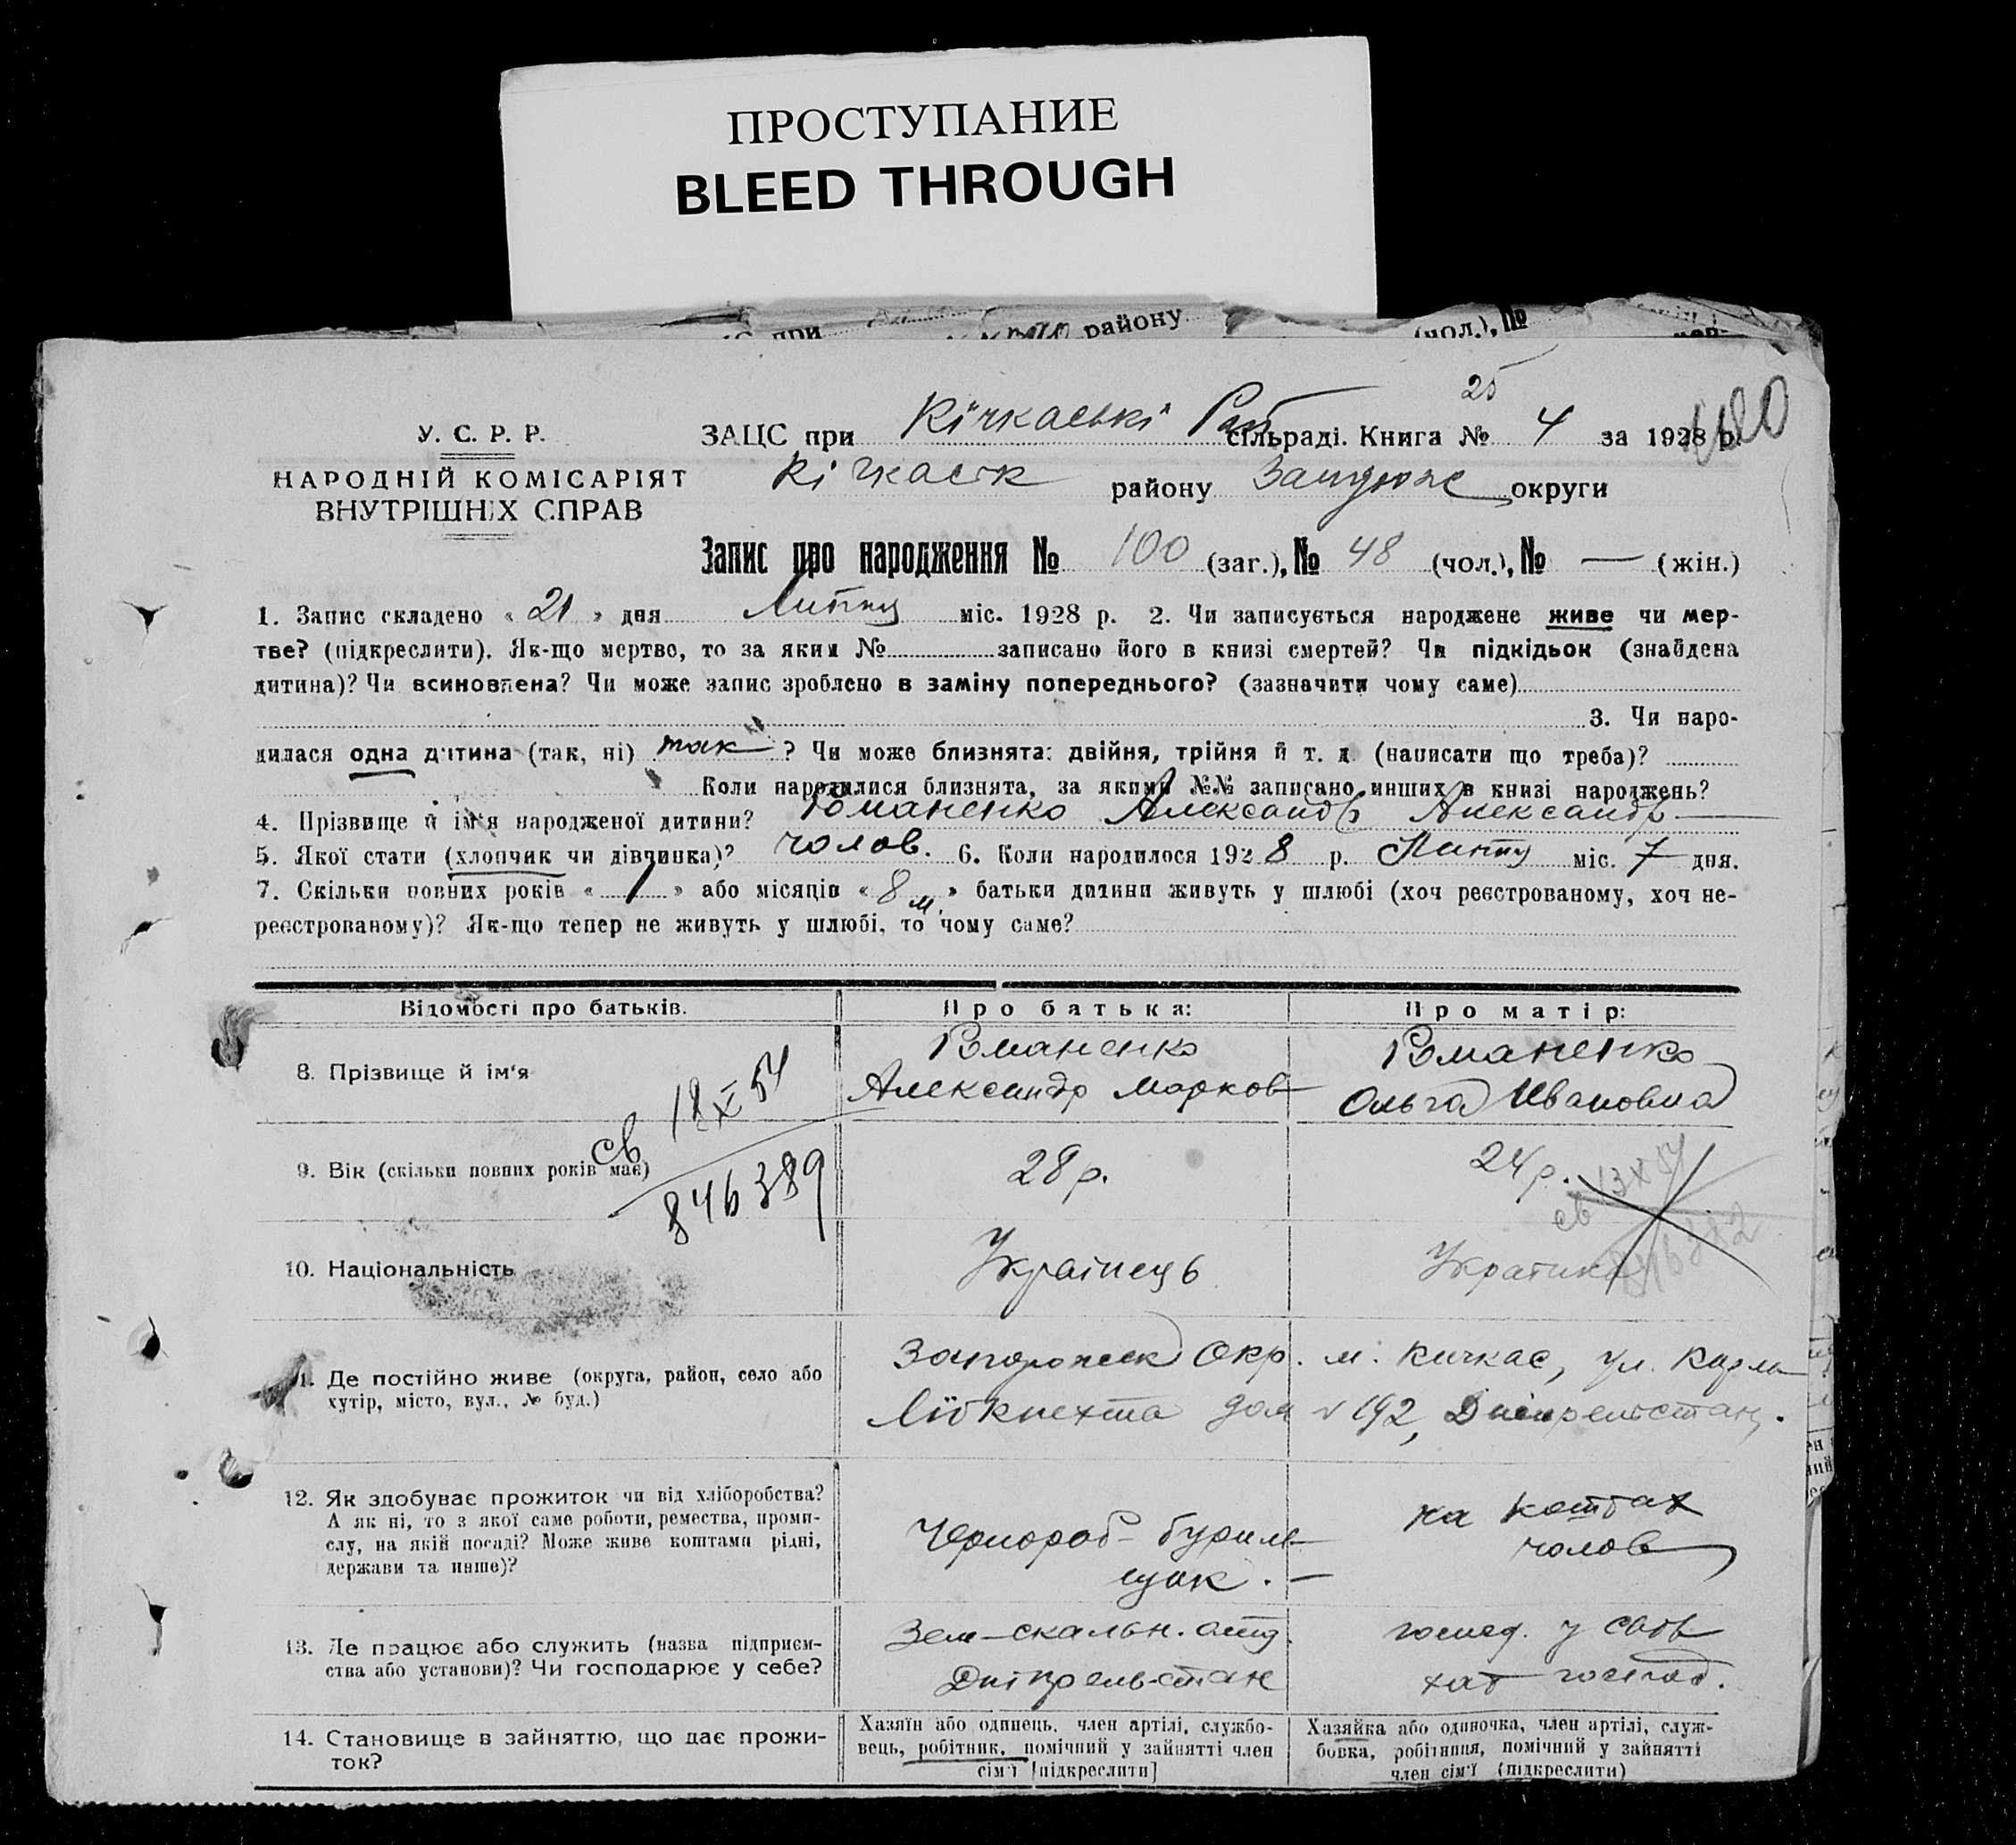 ПРОСТУПАНИЕ
BLEED THROUGH
при района району (чол.), №
25
У. С. Р. Р.
НАРОДНІЙ КОМІСАРІЯТ
ВНУТРІШНІХ СПРАВ
ЗАЦС при Кічкаські Раб сільраді. Книга № 4 за 1928 р.
Кічкаск району Запорож округи
Запис про народження № 100 (заг.), № 48 (чол.), № — (жін.)
1. Запис складено « 21 » дня Липня міс. 1928 р. 2. Чи записується народжене живе чи мер-
тве? (підкреслити). Як-що мертво, то за яким № записано його в книзі смертей? Чи підкідьок (знайдена
дитина)? Чи всиновлена? Чи може запис зроблено в заміну попереднього? (зазначити чому саме)
3. Чи наро-
дилася одна дитина (так, ні) так ? Чи може близнята: двійня, трійня й т. д. (написати що треба)?
Коли народилися близнята, за якими №№ записано инших в книзі народжень?
4. Прізвище й ім'я народженої дитини? Романенко Александр Александр
5. Якої стати (хлопчик чи дівчинка)? чолов. 6. Коли народилося 1928 р. Липня міс. 7 дня.
7. Скільки повних років « 1 » або місяців « 8 м. » батьки дитини живуть у шлюбі (хоч реєстрованому, хоч не-
реєстрованому)? Як-що тепер не живуть у шлюбі, то чому саме?
Відомості про батьків.
Про батька:
Про матір:
8. Прізвище й ім'я
Романенко
Александр Марков
Романенко
Ольга Ивановна
св 18 XI 54
846389
9. Вік (скільки повних років має)
28 р.
24 р.
св 13 X 54
10. Національність
Українець
Українка
11. Де постійно живе (округа, район, село або
хутір, місто, вул., № буд.)
Запорожск Окр. м. Кичкас, ул. Карла
Лібкнехта дом № 192, Дніпрельстан.
12. Як здобуває прожиток чи від хліборобства?
А як ні, то з якої саме роботи, ремества, проми-
слу, на якій посаді? Може живе коштами рідні,
держави та инше)?
Чернороб - буриль-
щик. —
на коштах
чолов
13. Де працює або служить (назва підприєм-
ства або установи)? Чи господарює у себе?
Зем-скальн. отд.
Дніпрельстан
господ. у своє
хат господ.
14. Становище в зайняттю, що дає прожи-
ток?
Хазяїн або одинець, член артілі, службо-
вець, робітник, помічний у зайнятті член
сім'ї [підкреслити]
Хазяйка або одиночка, член артілі, служ-
бовка, робітниця, помічний у зайнятті
член сім'ї (підкреслити)